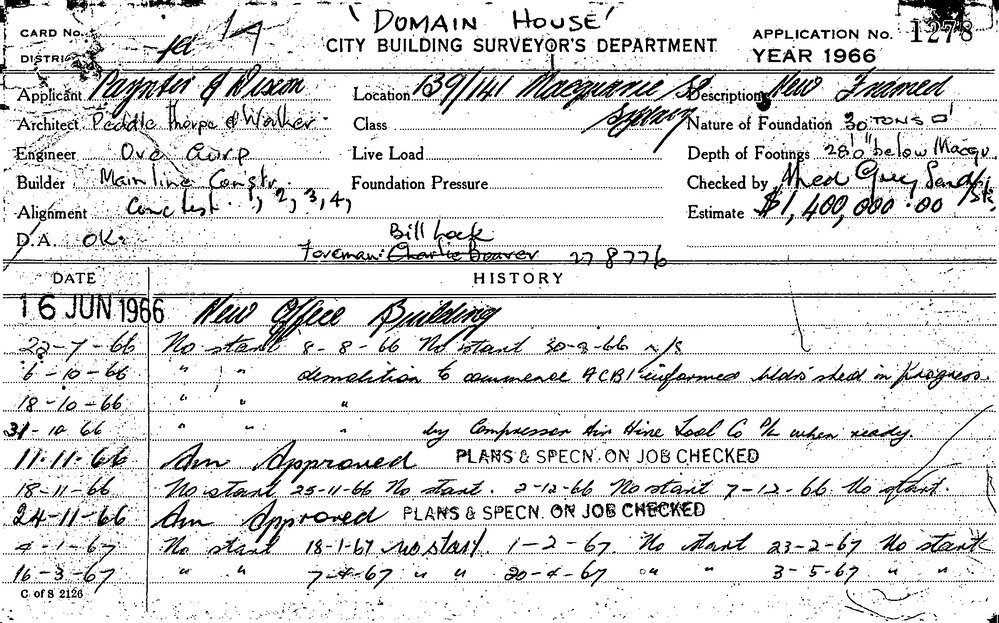 'DOMAIN HOUSE'
CARD No.
CITY BUILDING SURVEYOR'S DEPARTMENT
APPLICATION No. 1278
DISTRICT
YEAR 1966
Applicant Paynter & Dixon Location 139/141 Macquarie St Description New Framed
Sydney
Architect Peddle Thorpe & Walker. Class Nature of Foundation 30 TONS □'
Engineer Ove Arup Live Load Depth of Footings 28'0" below Macqu.
Builder Mainline Constr. Foundation Pressure Checked by Grey Sand
Alignment Conc test. 1, 2, 3, 4, Estimate $1,400,000.00
D.A. OK.
Bill Lock
Foreman: Charlie Beaver 27 8776
DATE HISTORY
16 JUN 1966 New Office Building
22-7-66 No start 8-8-66 No start 30-8-66 n/s
6-10-66 " " demolition to commence ACBI informed bldrs shed in progress.
18-10-66 " " "
31-10-66 " " " by Compressor Air Hire Tool Co P/L when ready.
11.11.66 Am Approved PLANS & SPECN. ON JOB CHECKED
18-11-66 No start 25-11-66 No start. 2-12-66 No start 7-12-66. No start.
24-11-66 Am Approved PLANS & SPECN. ON JOB CHECKED
4-1-67 No start 18-1-67 no start. 1-2-67. No start 23-2-67 No start
16-3-67 " " 7-4-67 " " 20-4-67 " " 3-5-67 " "
C of S 2126